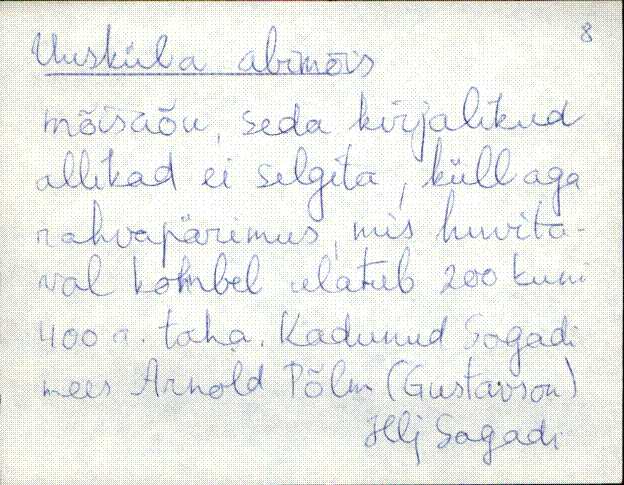 8
Uusküla abimõis
mõisaõu, seda kirjalikud
allikad ei selgita, küll aga
rahvapärimus, mis huvita-
val kombel ulatub 200 kuni
400 a. taha. Kadunud Sagadi
mees Arnold Põlm (Gustavson)
Hlj Sagadi